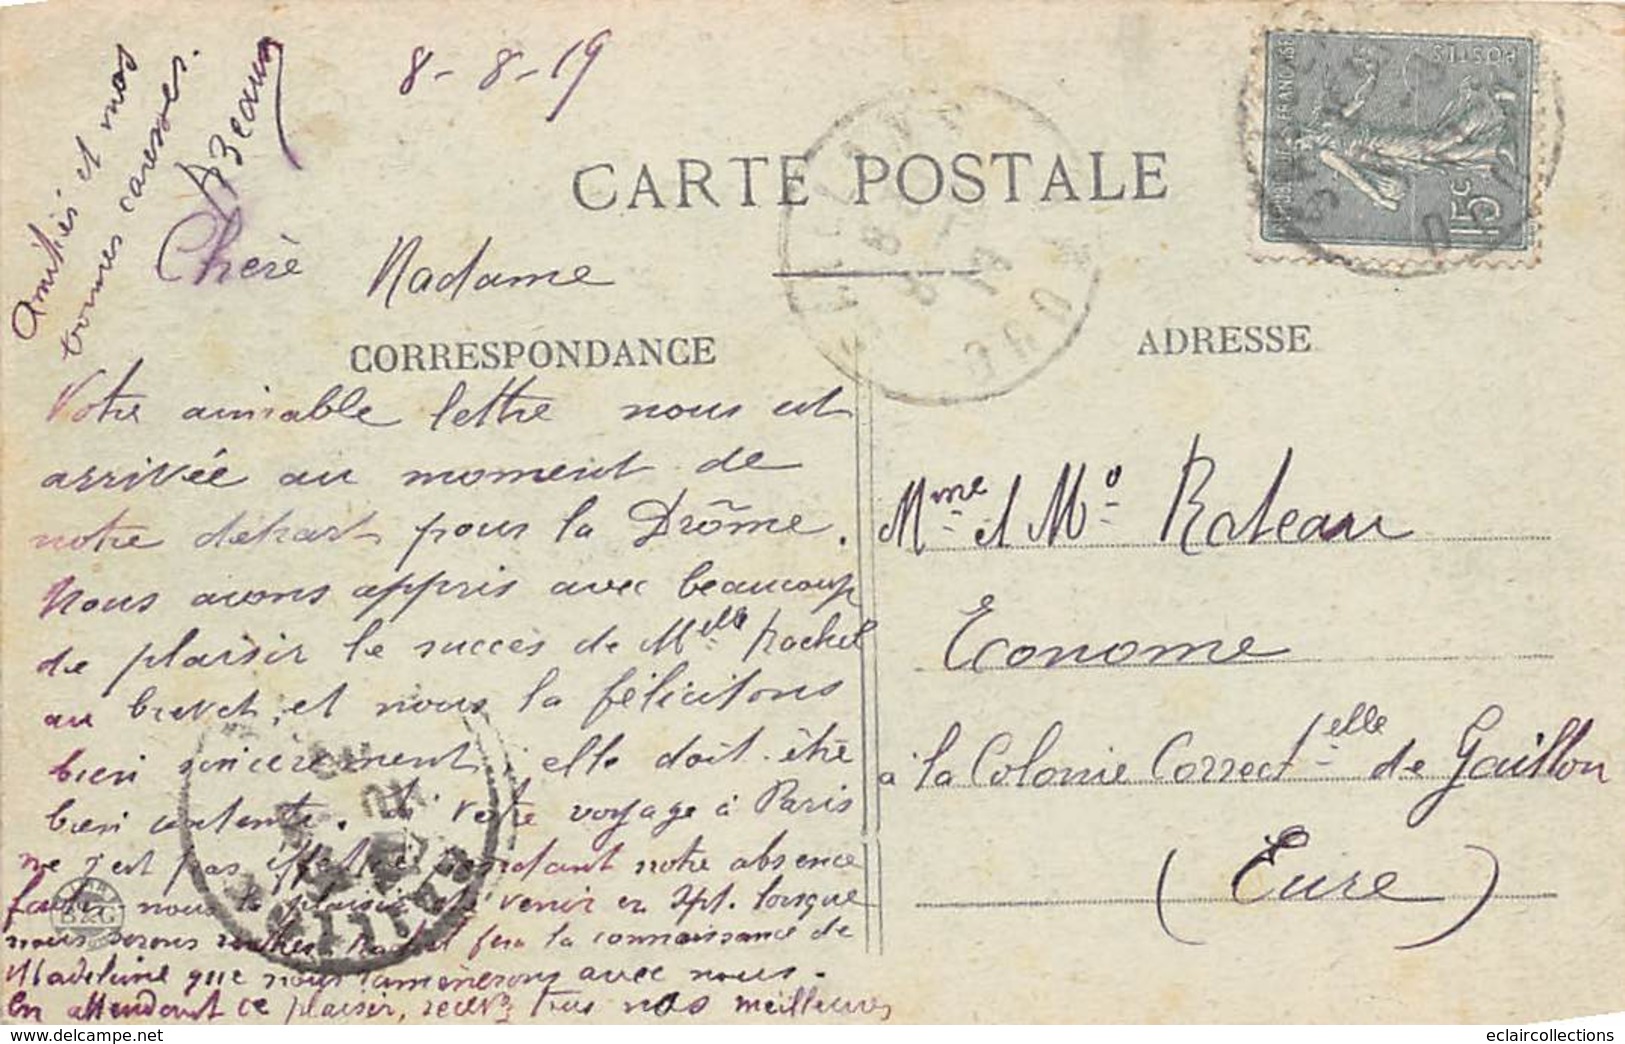 8-8-19
CARTE POSTALE
RÉPUBLIQUE FRANÇAISE
POSTES
15c
Chère Madame
CORRESPONDANCE
ADRESSE
Votre aimable lettre nous est
arrivée au moment de
notre départ pour la Drôme.
Nous avons appris avec beaucoup
de plaisir le succès de Melle Rachel
au brevet, et nous la félicitons
bien sincèrement, elle doit être
bien contente. Si votre voyage à Paris
ne s'est pas effectué pendant notre absence
faites-nous le plaisir de venir en Spt. lorsque
nous serons rentrés Rachel fera la connaissance de
Madeleine que nous ramènerons avec nous.
En attendant ce plaisir, recevz tous nos meilleures
Amitiés et nos
bonnes caresses.
ABeaun
Mme et Mo Rateau
Econome
à la Colonie Correctelle de Gaillon
(Eure)
eclaircollections